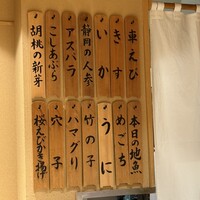 車えび
きす
いか
静岡の人参
アスパラ
こしあぶら
胡桃の新芽
本日の地魚
めごち
うに
竹の子
ハマグリ
穴子
桜えびかき揚げ